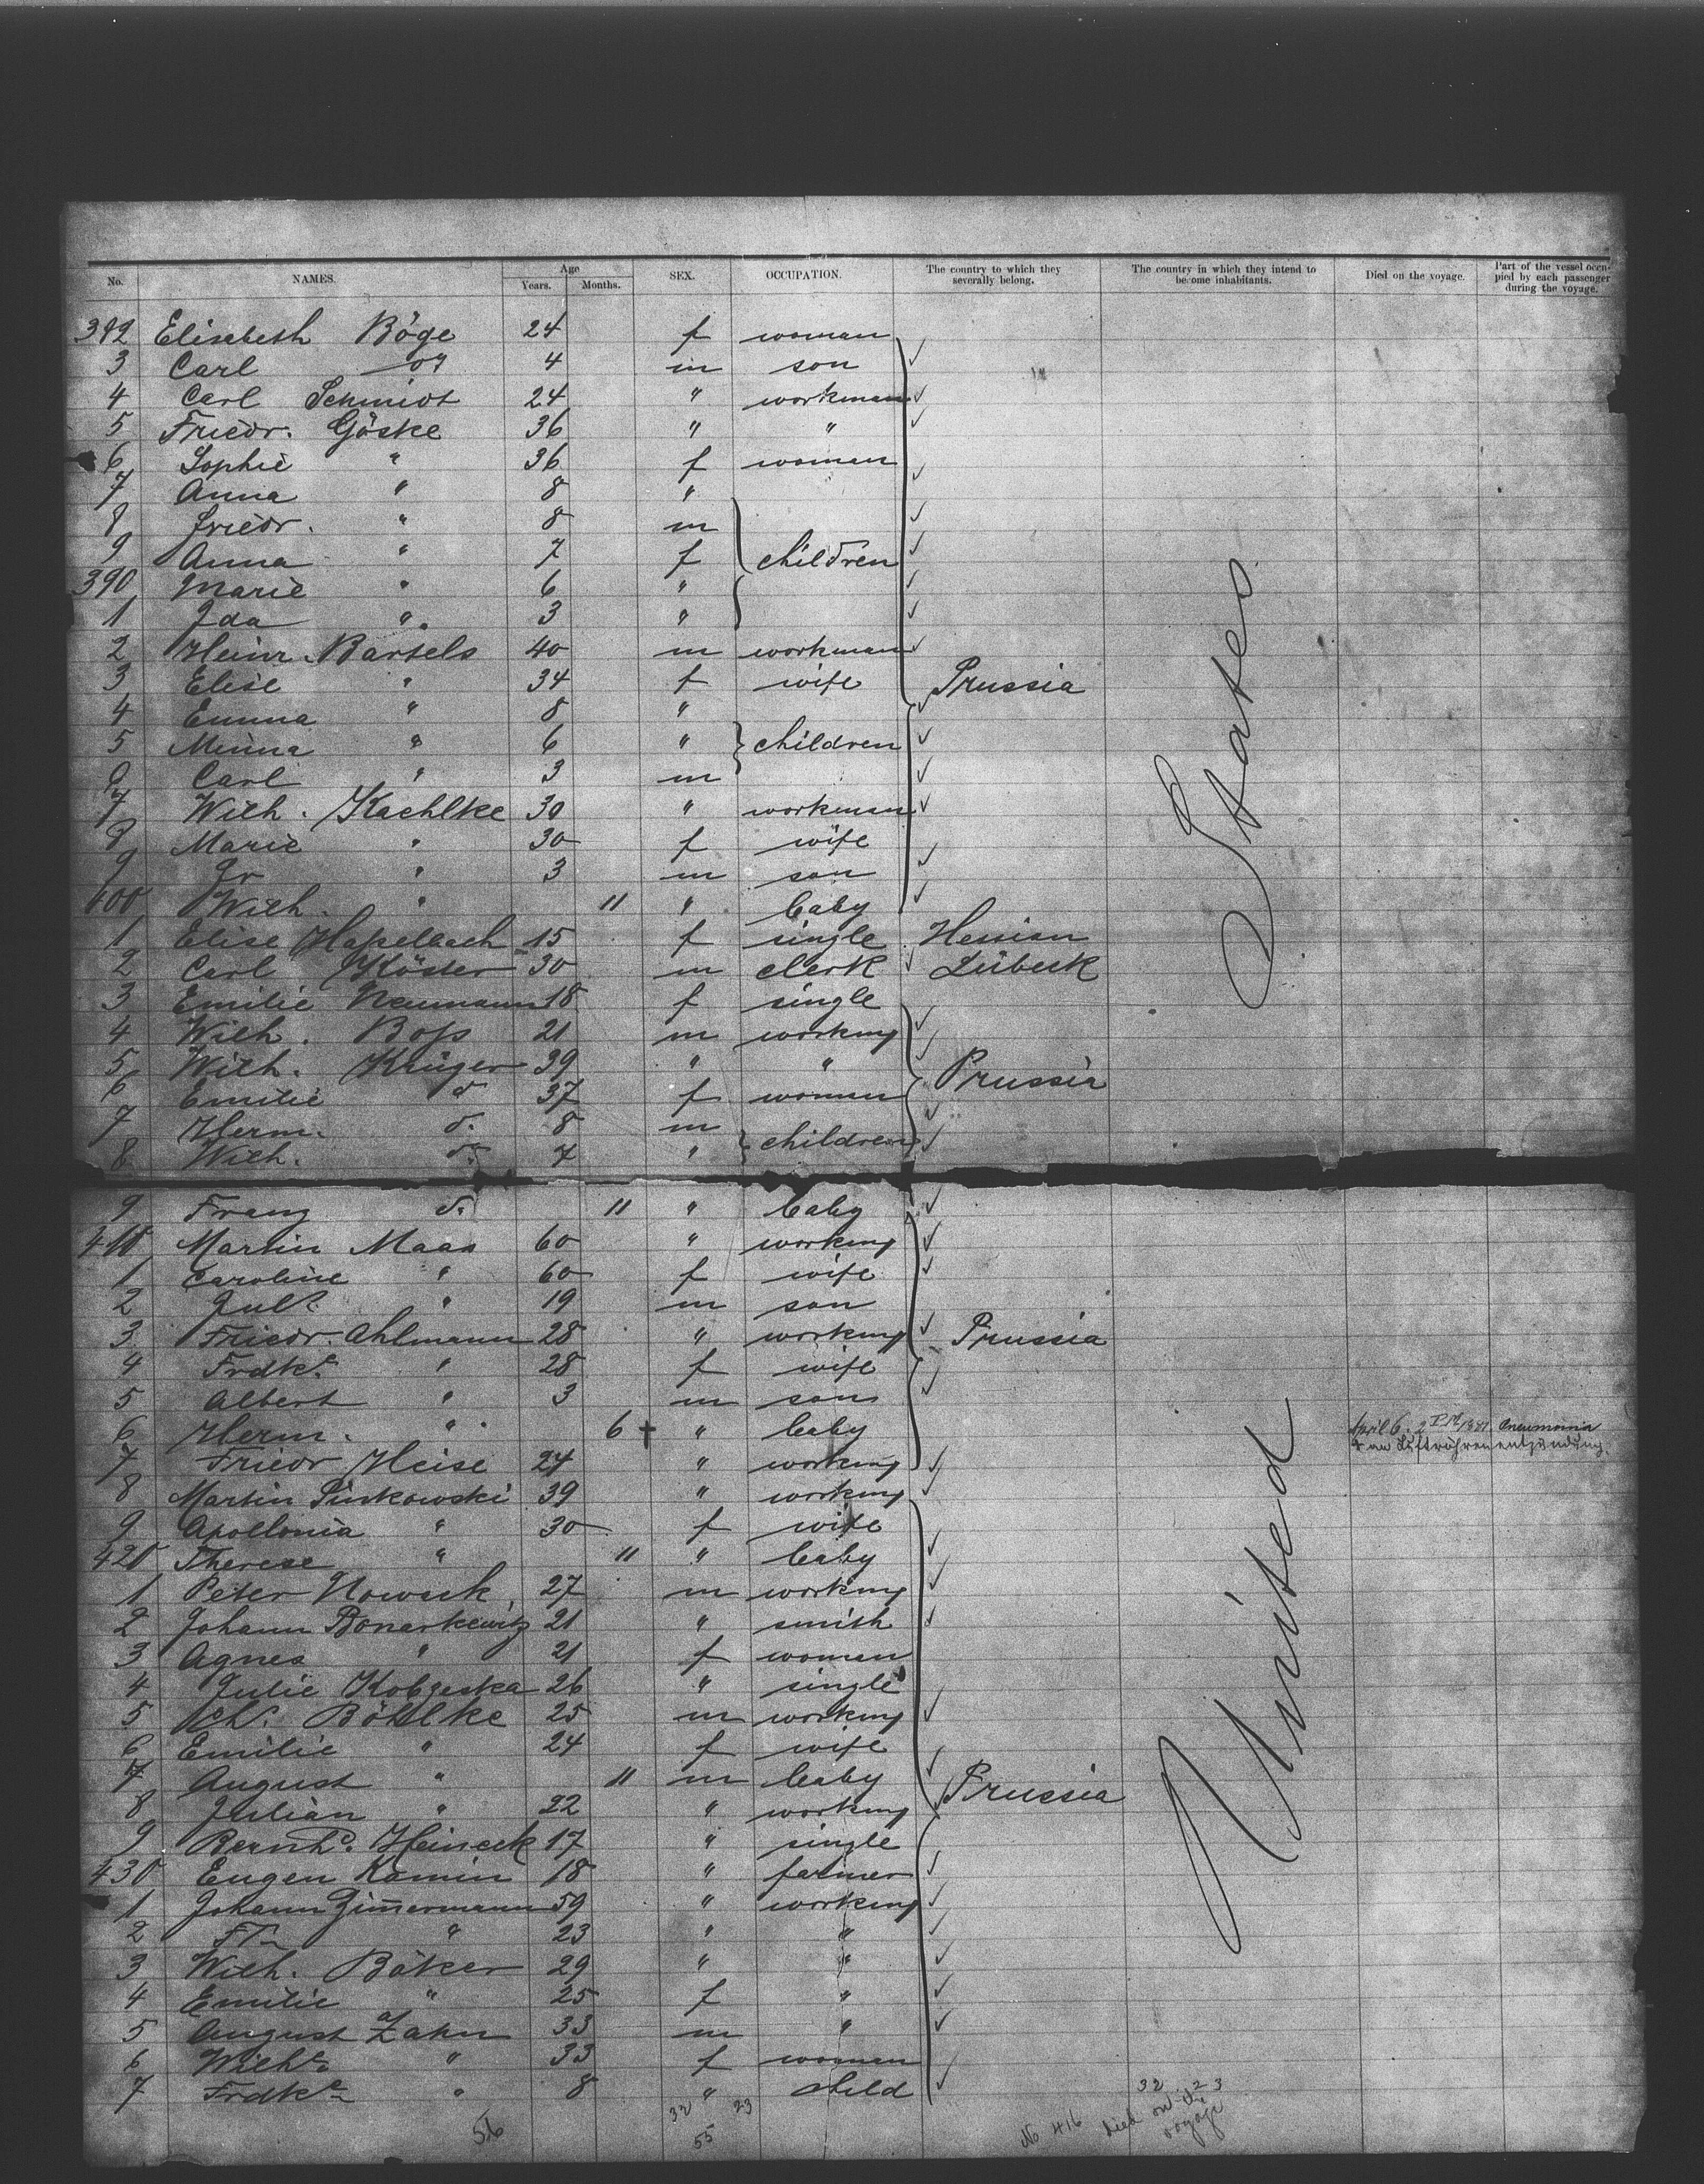 No. NAMES. Age Years. Months. SEX. OCCUPATION. The country to which they severally belong. The country in which they intend to become inhabitants. Died on the voyage. Part of the vessel occupied by each passenger during the voyage.
382 Elisabeth Böge 24 f woman
3 Carl 4 m son
4 Carl Schmidt 24 " workman
5 Friedr. Göske 36 " "
6 Sophie " 36 f woman
7 Anna " 8 "
8 Friedr. " 8 m
9 Anna " 7 f children
390 Marie " 6 "
1 Ida " 3 "
2 Heinr. Bartels 40 m workman
3 Elise " 34 f wife Prussia
4 Emma " 8 "
5 Minna " 6 " children
6 Carl " 3 m
7 Wilh. Kachlke 30 " workman
8 Marie " 30 f wife
9 " 3 m son
400 Wilh. " 11 " baby
1 Elise Haßelbach 15 f single Hessian
2 Carl Köster 30 m clerk Lübeck
3 Emilie Neumann 18 f single
4 Wilh. Boß 21 m working
5 Wilh. Krüger 39 " " Prussia
6 Emilie d. 37 f woman
7 Herm. d. 8 m
8 Wilh. d. 7 " children
9 Franz d. 11 " baby
410 Martin Maas 60 " working
1 Caroline " 60 f wife
2 Jul. " 19 m son
3 Friedr. Ahlmann 28 " working Prussia
4 Frdke. " 28 f wife
5 Albert " 3 m son
6 Herm. " 6 † " baby April 6. 2 P.M. 1881 Pneumonia
an Luftröhrenentzündung.
7 Friedr Heise 24 " working
8 Martin Sinkowski 39 " working
9 Apollonia " 30 f wife
420 Therese " 11 " baby
1 Peter Nowack 27 m working
2 Johann Bonarkewitz 21 " smith
3 Agnes " 21 f woman
4 Julie Kobzeska 26 " single
5 Böhlke 25 m working
6 Emilie " 24 f wife
7 August " 11 m baby Prussia
8 Julian " 22 " working
9 Bernhd. Heineck 17 " single
430 Eugen Kamin 18 " farmer
1 Johann Zim̄ermann 59 " working
2 Fr. " 23 " "
3 Wilh. Böker 29 " "
4 Emilie " 25 f "
5 August Zahn 33 m "
6 Wilhe. " 33 f woman
7 Frdke. " 8 " child
United States
32 23
55
56
32 23
No 416 Died on the voyage